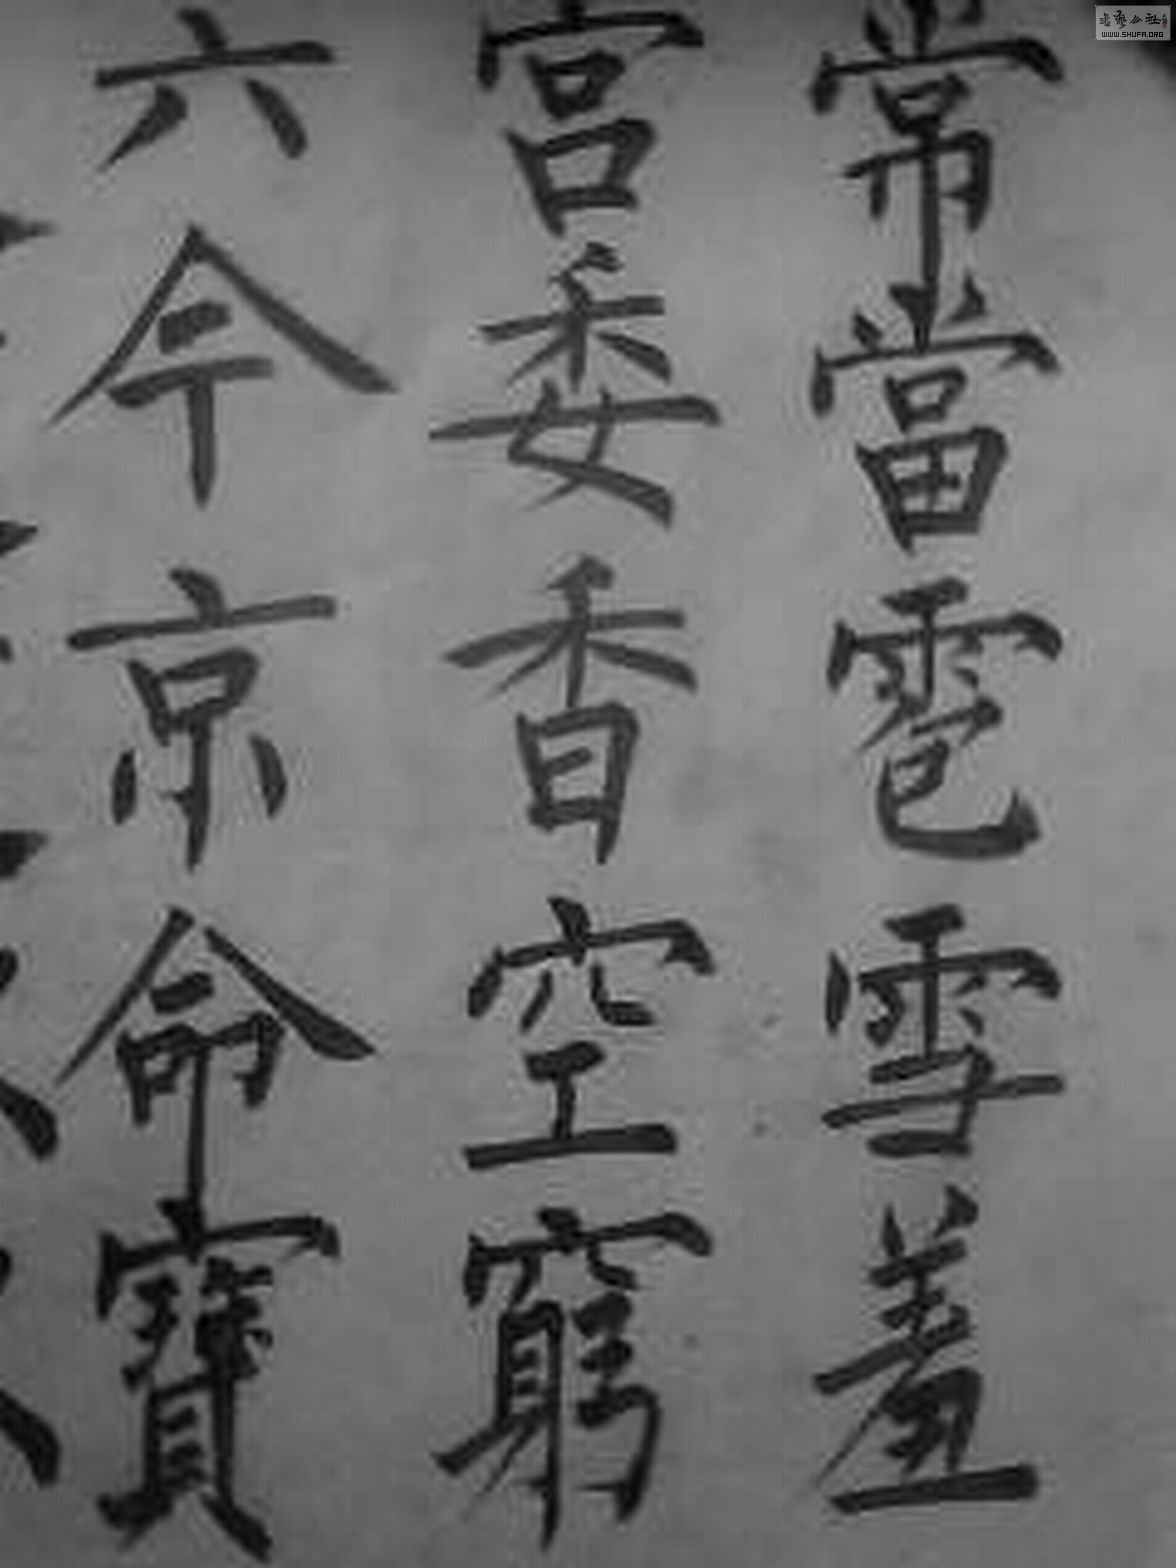 常當雹雪羞
宮委香空窮
六今京命寶
WWW.SHUFA.ORG